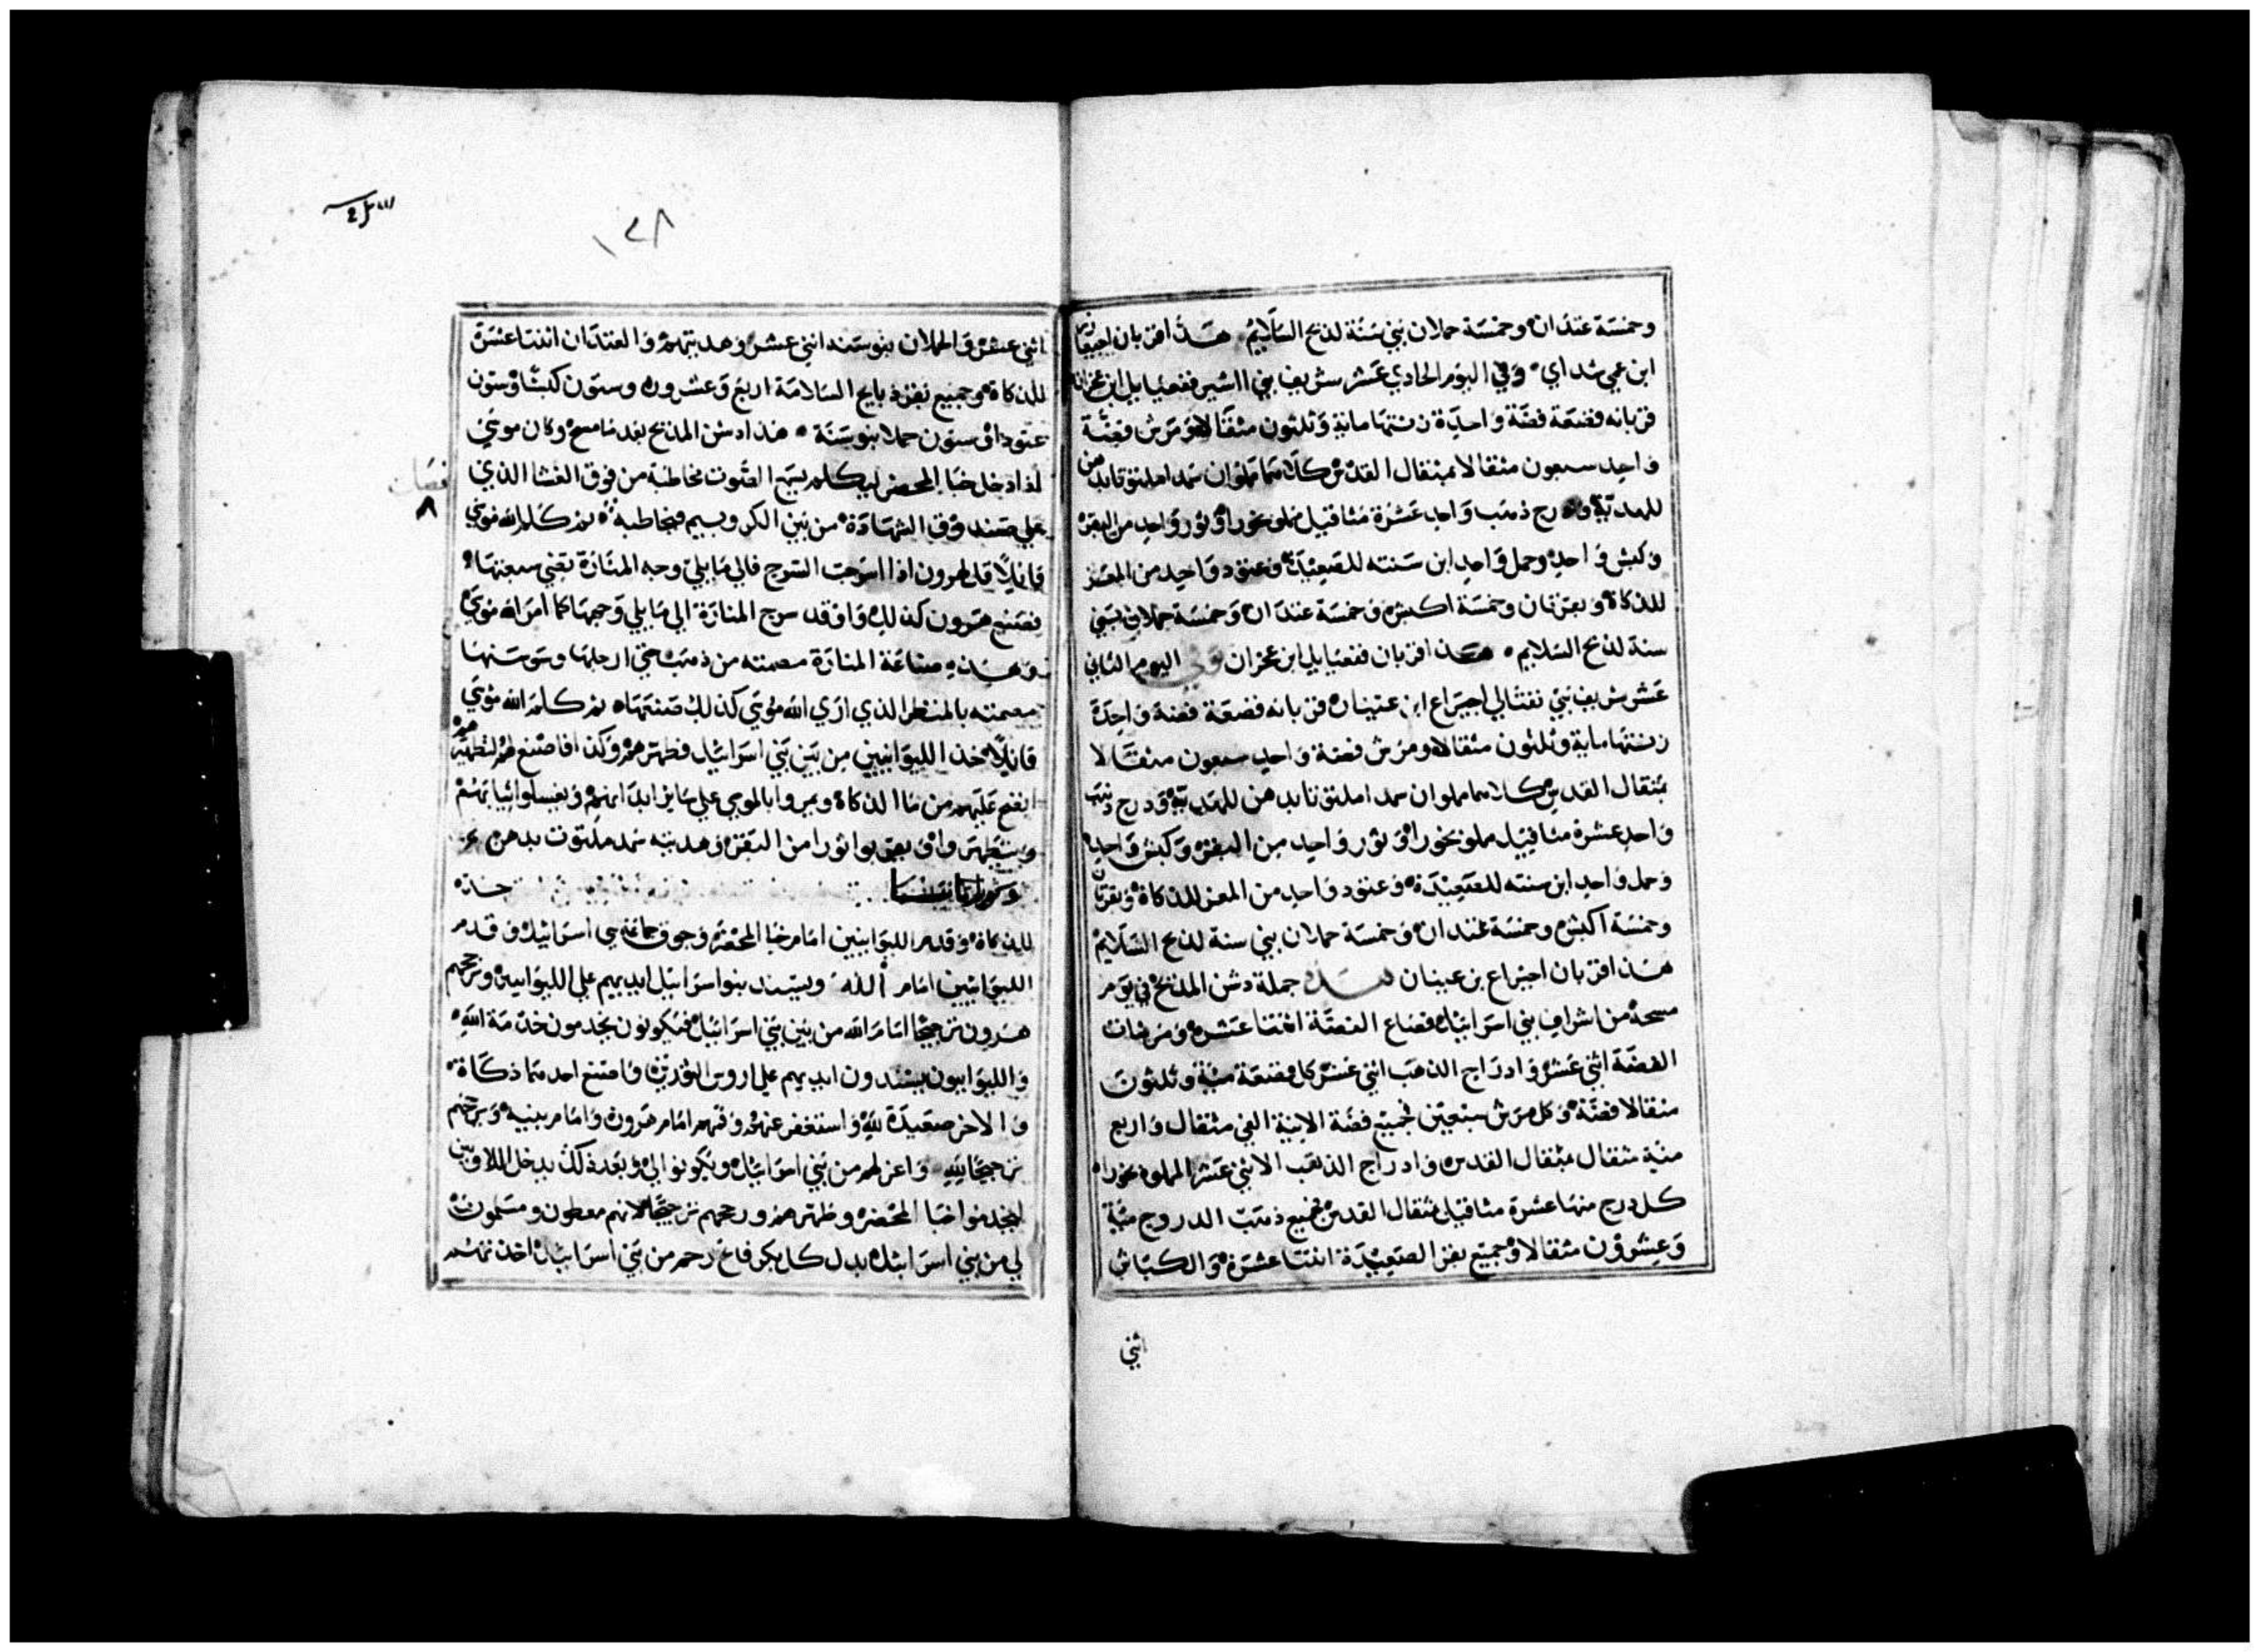 وخمسة عتدان وخمسة حملان بني سنة لذبح السلايم هذا قربان اجيعازر
ابن عمي شداي وفي اليوم الحادي عشر شريف بني اشير فغعيايل ابن عخران
قربانه قصعة فضة واحدة زنتها ماية وثلثون مثقالا ومرش فضة
واحد سبعون مثقالا بمثقال القدس كلاهما مملوان سمدا ملتوتا بدهن
للهدية ودرج ذهب واحد عشرة مثاقيل مملو بخورا وثور واحد من البقر
وكبش واحد وحمل واحد ابن سنته للصعيدة وعتود واحد من المعز
للذكاة وبقرتان وخمسة اكبش وخمسة عتدان وخمسة حملان بني
سنة لذبح السلايم هذا قربان فغعيايل ابن عخران وفي اليوم الثاني
عشر شريف بني نفتالي اجيراع ابن عينان قربانه قصعة فضة واحدة
زنتها ماية وثلثون مثقالا ومرش فضة واحد سبعون مثقالا
بمثقال القدس كلاهما مملوان سمدا ملتوتا بدهن للهدية ودرج ذهب
واحد عشرة مثاقيل مملو بخورا وثور واحد من البقر وكبش واحد
وحمل واحد ابن سنته للصعيدة وعتود واحد من المعز للذكاة وبقرتان
وخمسة اكبش وخمسة عتدان وخمسة حملان بني سنة لذبح السلايم
هذا قربان اجيراع بن عينان هذه جملة دشن المذبح في يوم
مسحه من اشراف بني اسرائيل قصاع الفضة اثنتا عشرة ومرشات
الفضة اثني عشر وادراج الذهب اثني عشر كل قصعة مية وثلثون
مثقالا فضة وكل مرش سبعين فجميع فضة الانية الفي مثقال واربع
مية مثقال بمثقال القدس وادراج الذهب الاثني عشر المملوة بخورا
كل درج منها عشرة مثاقيل بمثقال القدس فجميع ذهب الدروج مية
وعشرون مثقالا وجميع بقر الصعيدة اثنتا عشرة والكباش
اثني
١٢٨
اثني عشر والحملان بنو سنة اثني عشر وهديتهم والعتدان اثنتا عشرة
للذكاة وجميع بقر ذبايح السلامة اربع وعشرون وستون كبشا وستون
عتودا وستون حملا بنو سنة هذا دشن المذبح بعد ما مسح وكان موسي
اذا دخل خبا المحضر ليكلمه يسمع الصوت مخاطبة من فوق الغشا الذي
علي صندوق الشهادة من بين الكروبيم فيخاطبه ثم كلم الله موسي
قايلا قل لهرون اذا اسرجت السرج فالي ما يلي وجه المنارة تضي سبعتها
فصنع هرون كذلك واوقد سرج المنارة الي ما يلي وجهها كما امر الله موسي
وهذه صناعة المنارة مصمته من ذهب حتي ارجلها وسوسنها
مصمته بالمنظر الذي اري الله موسي كذلك صنعها ثم كلم الله موسي
قايلا خذ الليوانيين من بين بني اسرائيل فطهرهم وكذا فاصنع لهم لتطهرهم
انضح عليهم من ما الذكاة ويمروا بالموسي علي ساير ابدانهم ويغسلوا ثيابهم
ويتطهروا ويقربوا ثورا من البقر وهديته سمد ملتوت بدهن
للذكاة وقدم الليوانيين امام خبا المحضر وجوق جماعة بني اسرائيل وقدم
الليوانيين امام الله ويسند بنو اسرائيل ايديهم علي الليوانيين ويرجحهم
هرون ترجيحا امام الله من بين بني اسرائيل فيكونون يخدمون خدمة الله
والليوانيون يسندون ايديهم علي اروس الثورين واصنع احدهما ذكاة
والاخر صعيدة لله واستغفر عنهم وقفهم امام هرون وامام بنيه ورجحهم
ترجيحا لله واعزلهم من بني اسرائيل ويكونوا لي وبعد ذلك يدخل اللاويين
ليخدموا خبا المحضر وطهرهم ورجحهم ترجيحا لانهم معطون ومسلمون
لي من بني اسرائيل بدل كل بكر فاتح رحم من بني اسرائيل اخذتهم